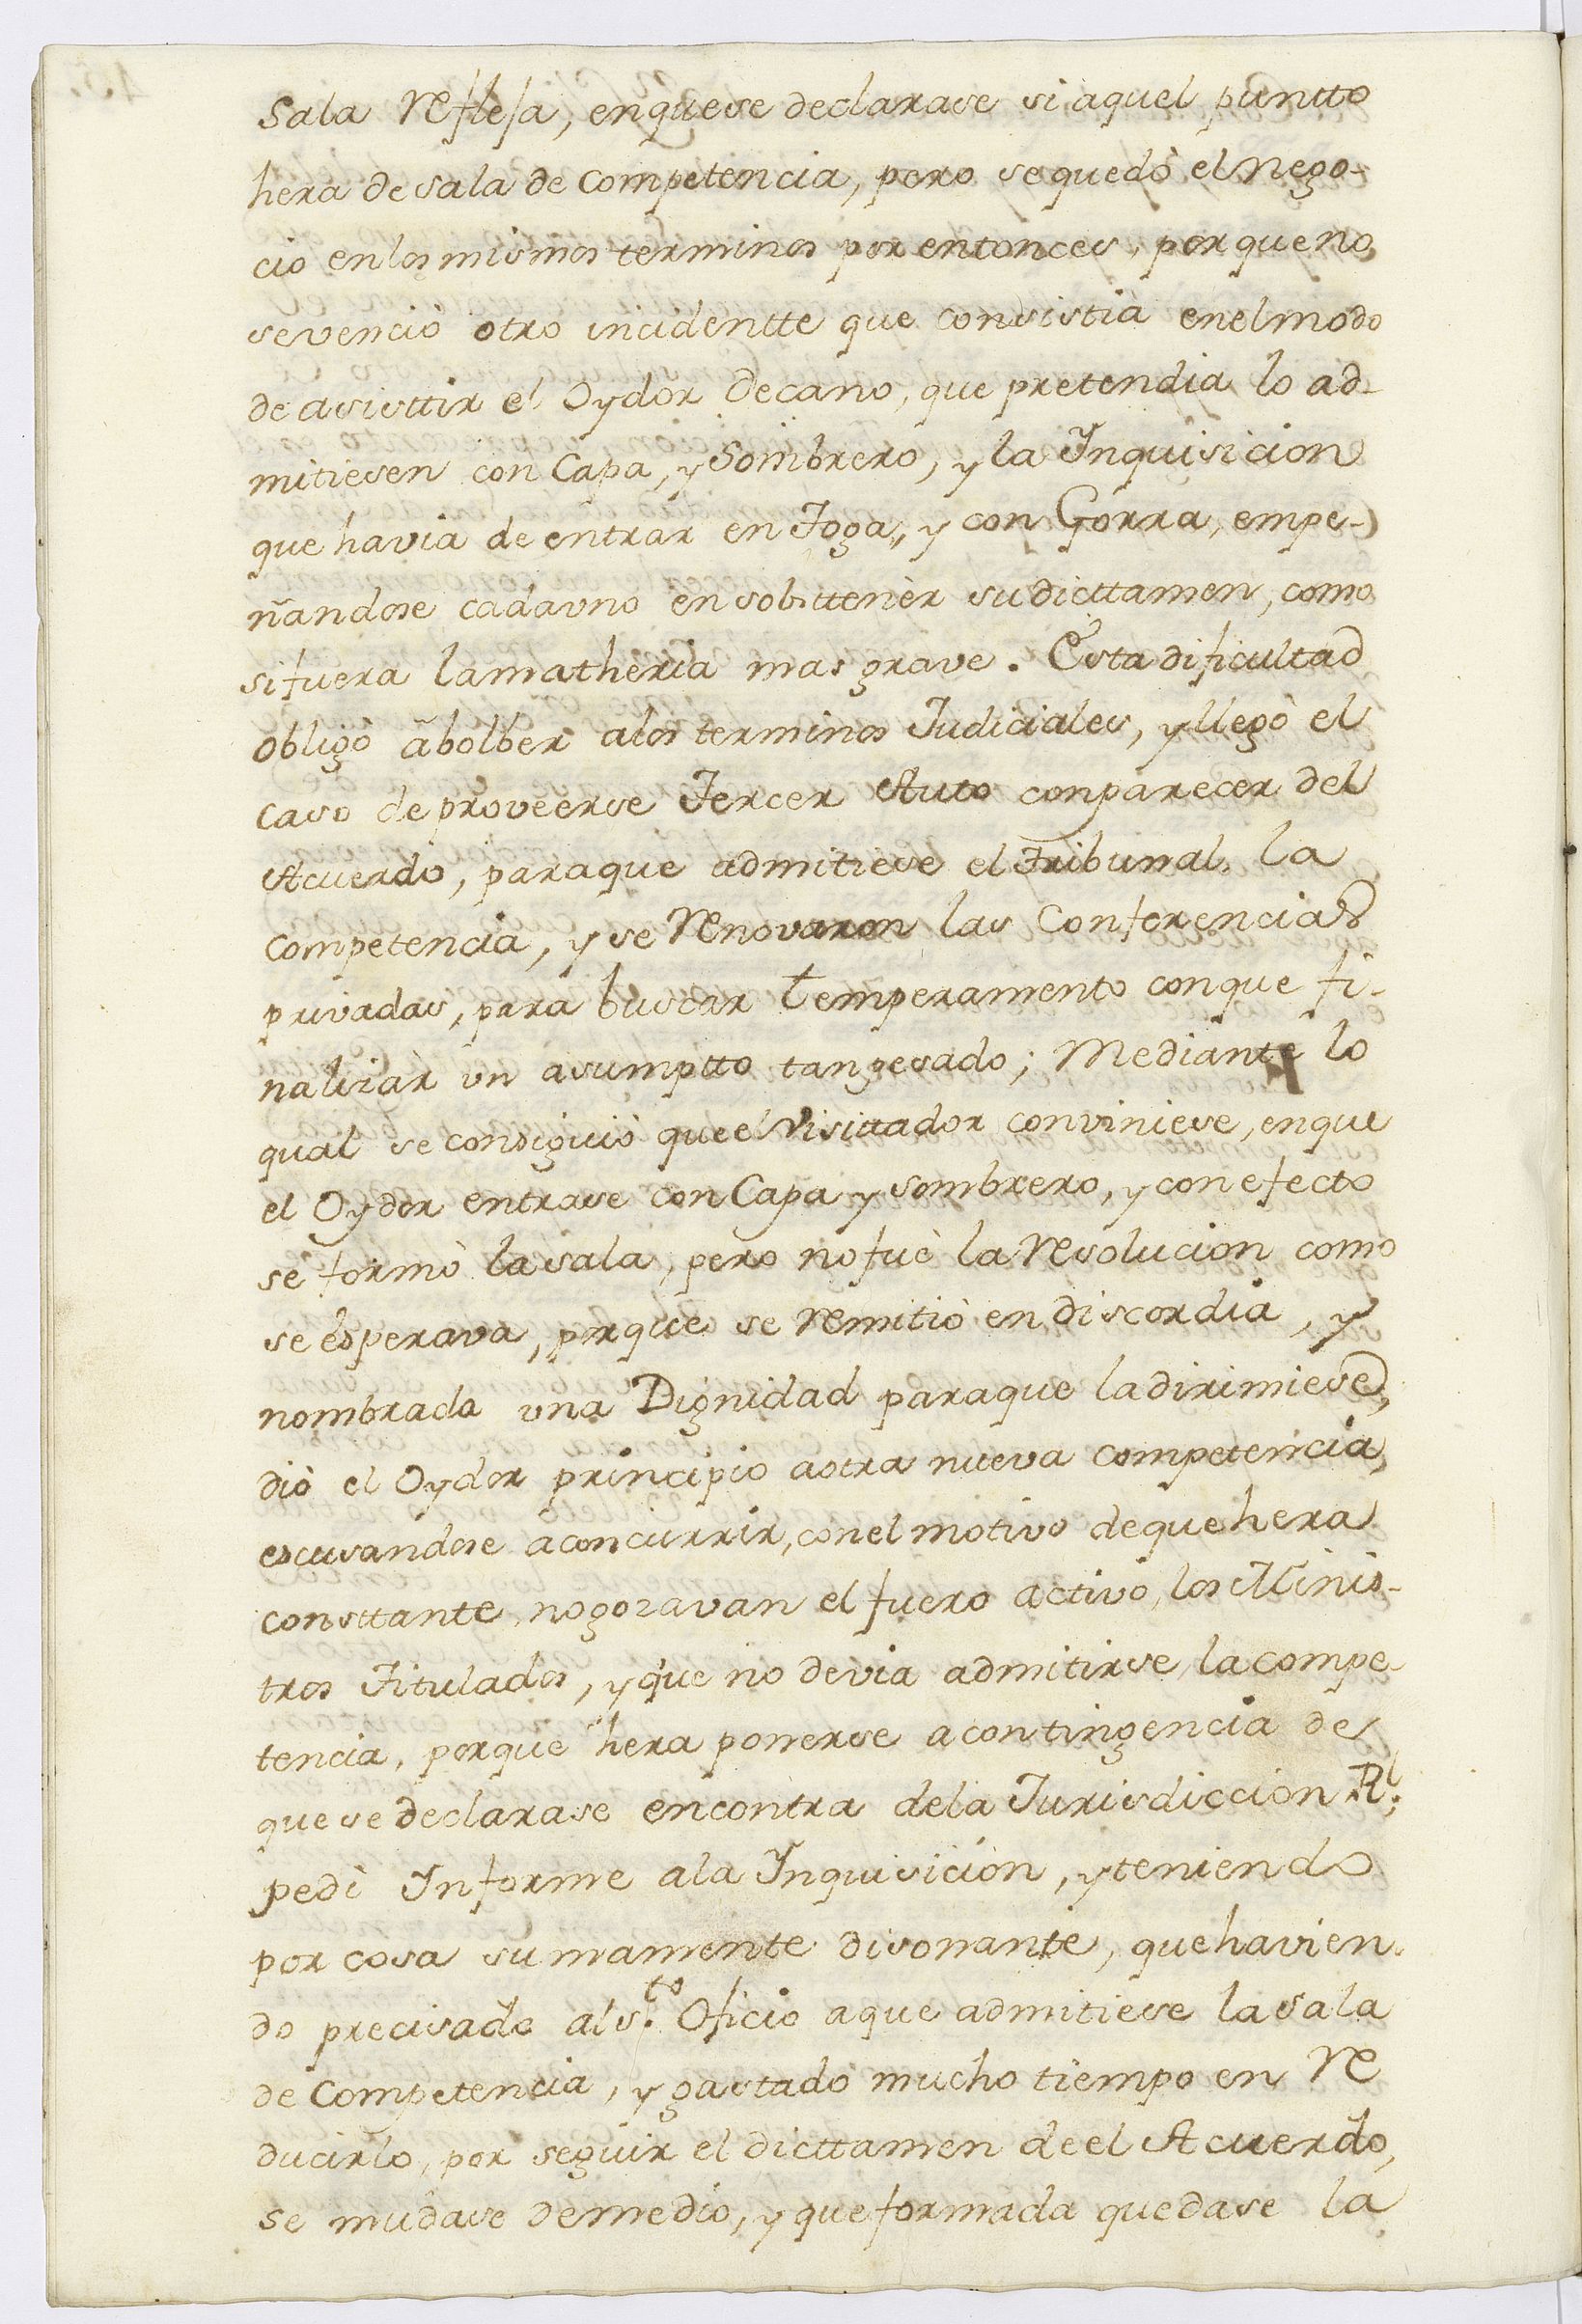 Sala Reflesa, enquese declarase si aquel puntto
hera de sala de Competencia, pero sequedò el nego-
cio enlos mismos terminos por entonces, porque no
sevenciò otro incidentte que consistia enel modo
de asisttir el Oydor Decano, que pretendia lo ad-
mitiesen con Capa, y Sombrero, y la Inquisicion
que havia de entrar en Toga, y con Gorra, empe-
ñandose cadauno en sobttener su dicttamen, como
si fuera lamatheria mas grave. Esta dificultad
obligò àbolber alos terminos Judiciales, y llegò el
caso de proveerse Tercer Auto conparecer del
Acuerdo, paraque admitiese el Tribunal la
Competencia, y se Renovaron las Conferencias
privadas, para buscar temperamento conque fi-
nalizar un asumptto tan pesado; Mediante lo
qual se consiguiò que el Visittador conviniese, enque
el Oydor entrase con Capa y sombrero, y con efecto
se formò la sala, pero no fuè la Resolucion como
se esperava, porque se Remitiò en discordia, y
nombrada una Dignidad paraque ladirimiese,
diò el Oydor principio aotra nueva Competencia,
escusandose aconcurrir, conel motivo deque hera
consttante, no gozavan el fuero activo, los Minis-
tros Titulados, y que no devia admitirse, la compe-
tencia, porque hera ponerse a contingencia de
que se declarase encontra dela Jurisdiccion Rl;
pedì Informe ala Inquisicion, y teniendo
por cosa sumamente disonante, que havien-
do precisado al s.to Oficio aque admitiese la sala
de Competencia, y gastado mucho tiempo en Re
ducirlo, por seguir el dicttamen de el Acuerdo,
se mudase demedio, y que formada quedase la